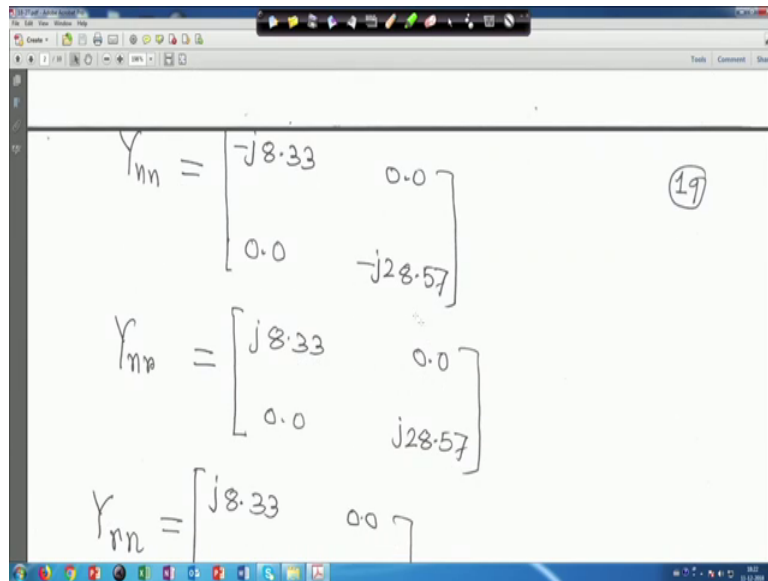 File Edit View Window Help
Create
Tools Comment
Y_nn = [ -j8.33 0.0
0.0 -j28.57 ]
19
Y_nr = [ j8.33 0.0
0.0 j28.57 ]
Y_rn = [ j8.33 0.0